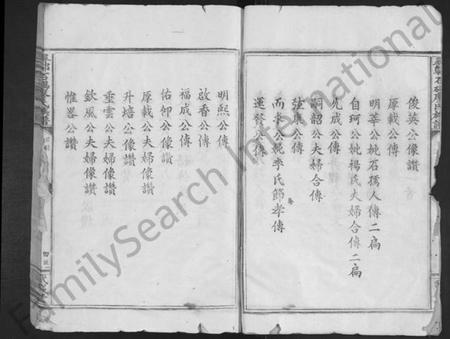 俊英公像讚
厚載公傳
明華公妣石孺人傳二扁
自珂公妣楊氏夫婦合傳二扁
光成公傳
嗣韶公夫婦合傳
公傳
李氏節孝傳
運督公傳
明熙公傳
啟香公傳
福成公傳
佑卿公像讚
厚載公夫婦像讚
升培公像讚
重雲公夫婦像讚
欽風公夫婦像讚
惟畧公讚
FamilySearch International